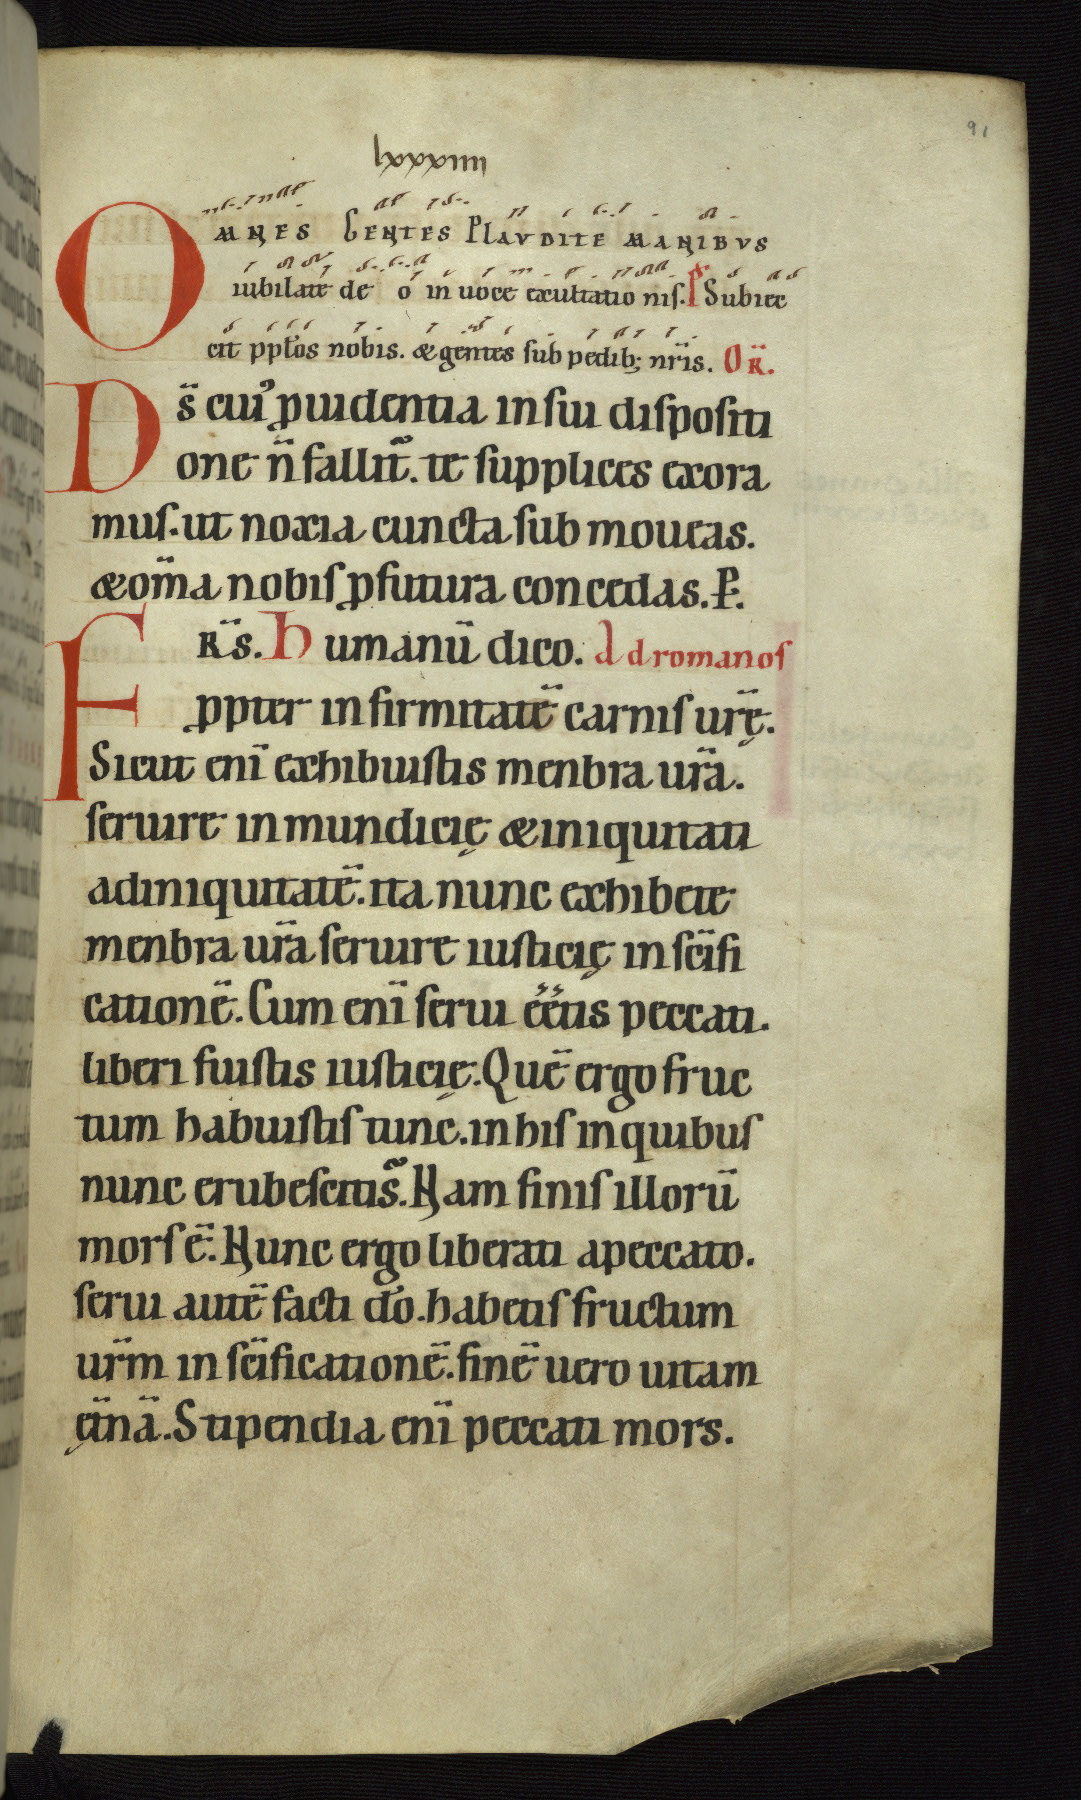 91
lxxxiiii
OMNES GENTES PLAVDITE MANIBVS
iubilate de o in uoce exultatio nis. Ps Subiec
cit pplos nobis. & gentes sub pedib; nr̄is. OR̄.
Ds̄ cui' puidentia in sui dispositi
one n̄ fallit. te supplices exora
mus. ut noxia cuncta sub moueas.
& om̄a nobis pfutura concedas. P.
FRS̄. Humanū dico. Ad romanos
ppter infirmitatē carnis ur̄ę.
Sicut enī exhibuistis menbra ur̄a.
seruire inmundicię & iniquitati
ad iniquitatē. ita nunc exhibete
menbra ur̄a seruire iusticię in sc̄ifi
cationē. Cum enī serui eētis peccati.
liberi fuistis iusticię. Quē ergo fruc
tum habuistis tunc. in his in quibus
nunc erubescitis. Nam finis illorū
mors ē. Nunc ergo liberati a peccato.
serui autē facti do. habetis fructum
ur̄m in sc̄ificationē. finē uero uitam
ęt̄nā. Stipendia enī peccati mors.